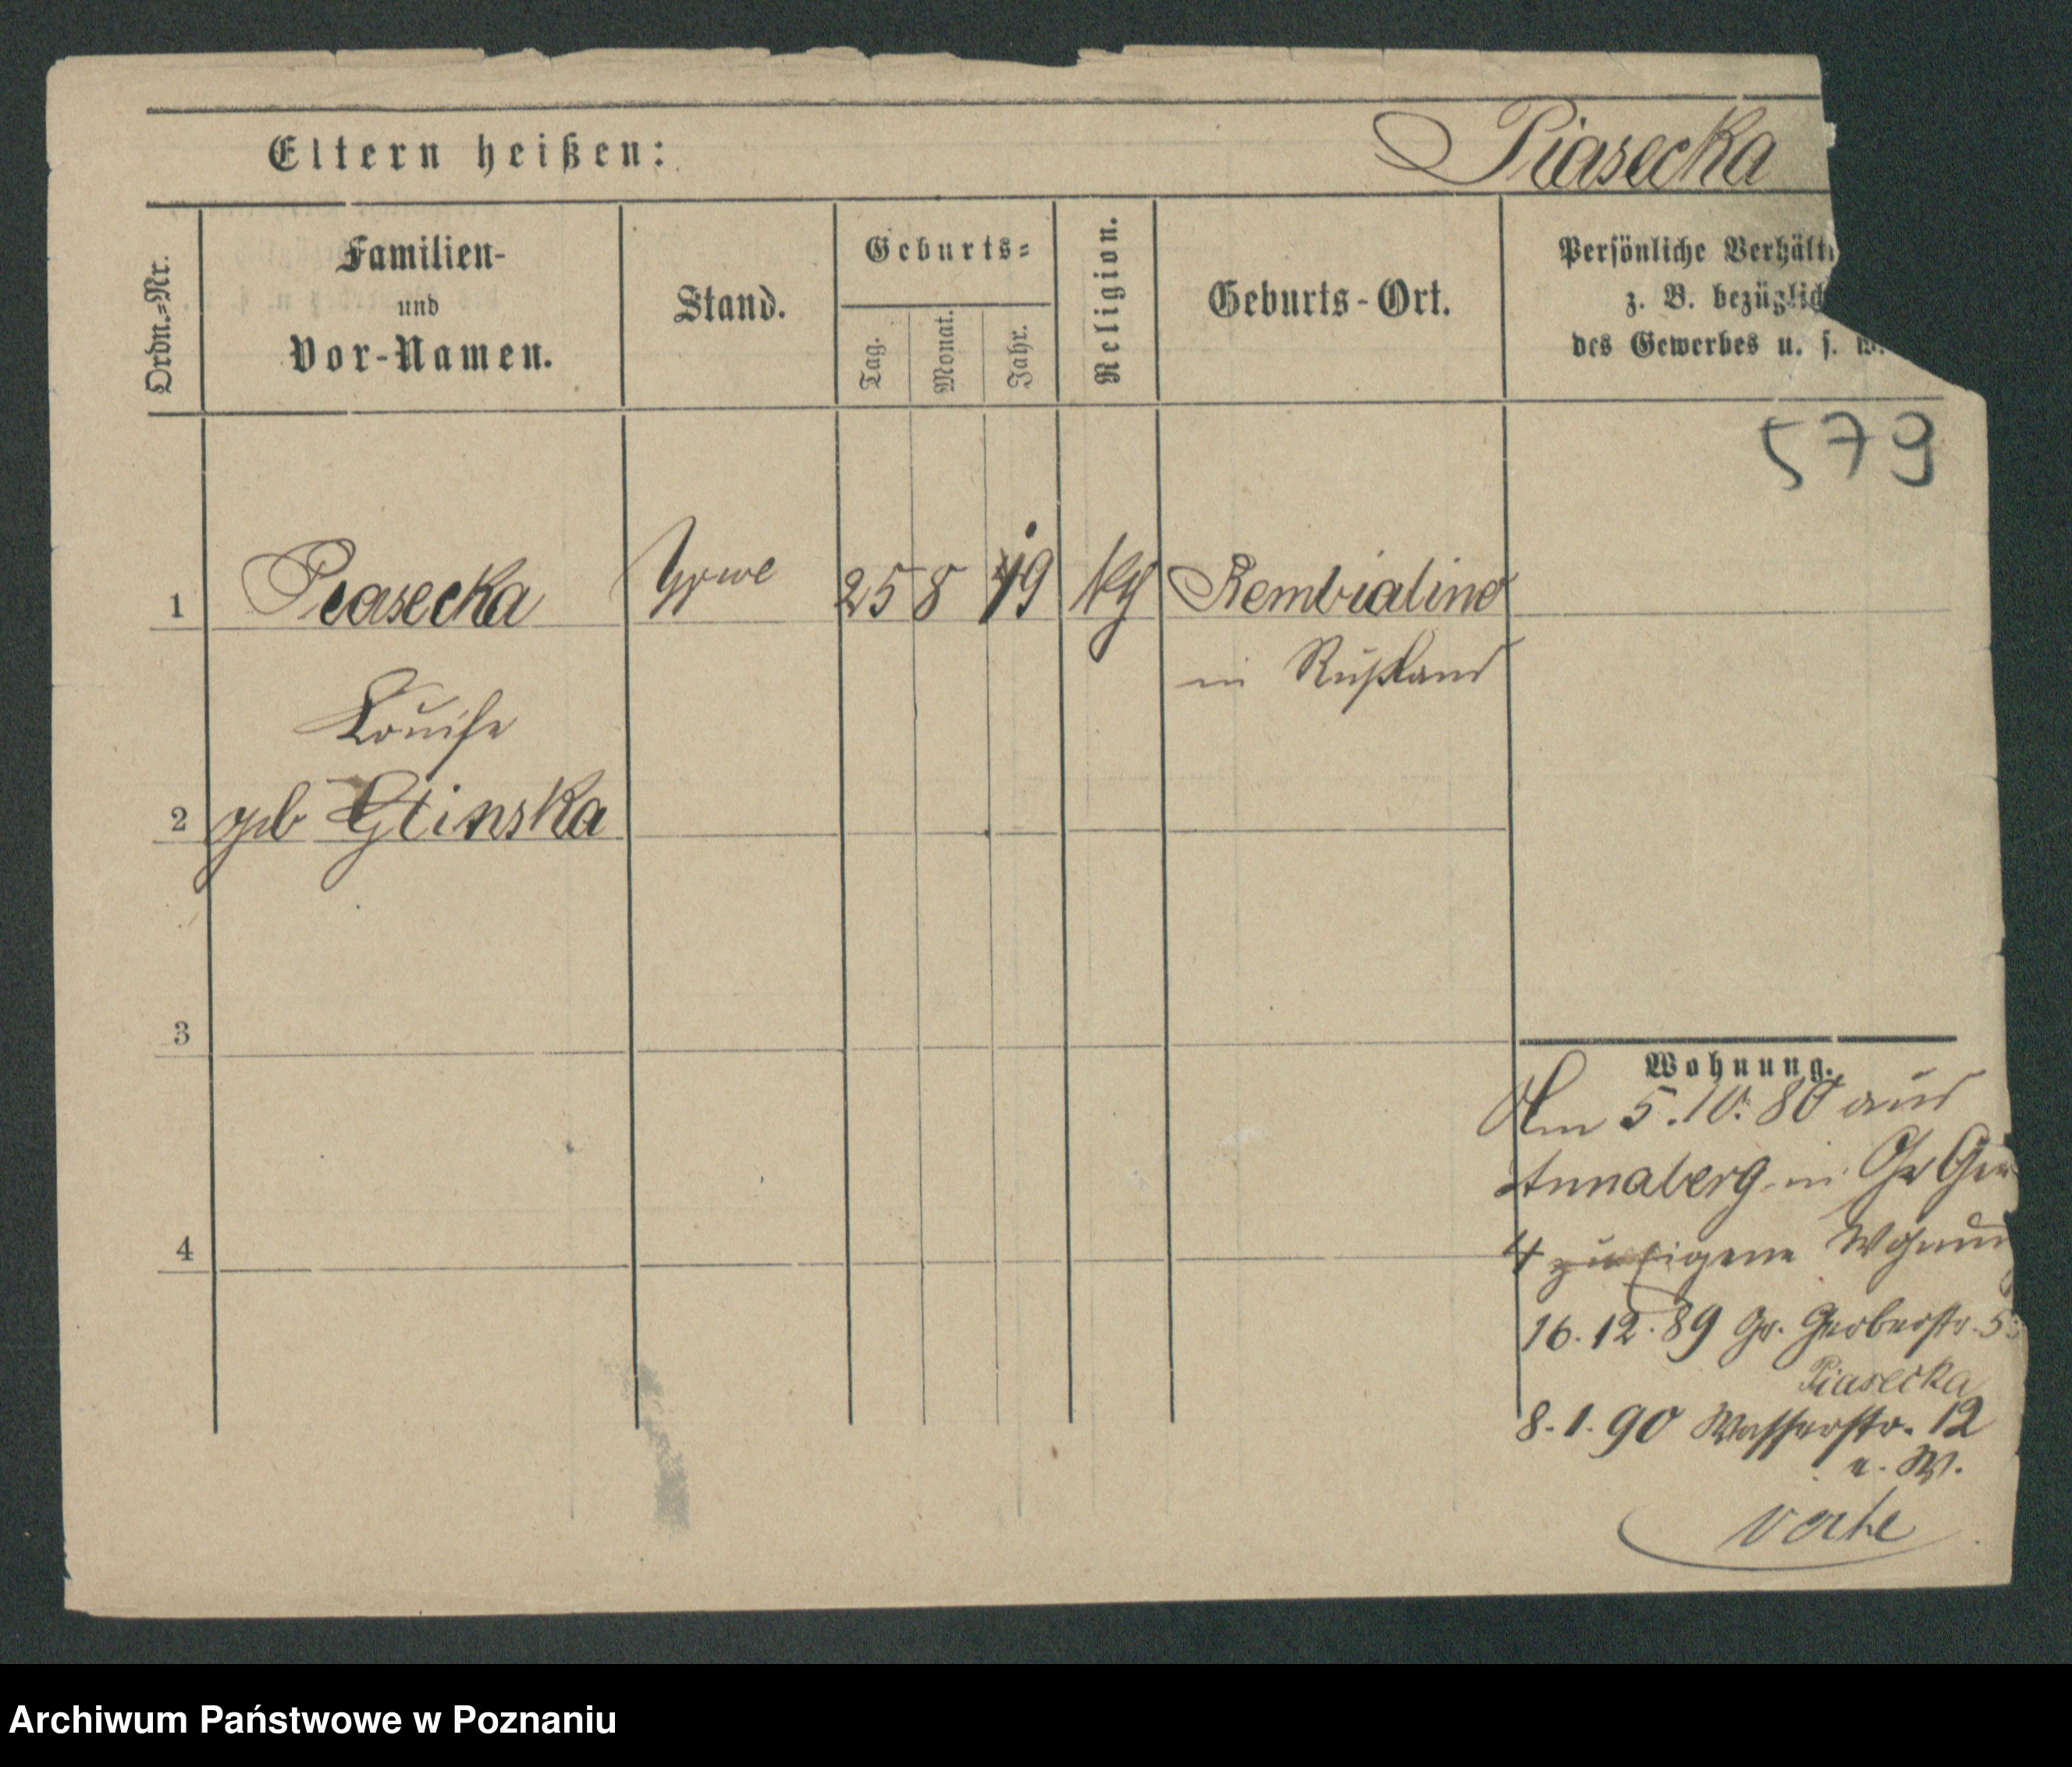 Eltern heißen: Piasecka
Ordn.=Nr.
Familien-
und
Vor-Namen.
Stand.
Geburts=
Tag.
Monat.
Jahr.
Religion.
Geburts-Ort.
Persönliche Verhält
z. B. bezüglich
des Gewerbes u. s. w.
579
1 Piasecka 25 8 49 Rembialino
in Rußland
Louise
2 geb Glinska
3
Wohnung.
Am 5. 10. 80 aus
Annaberg in Gr Ger
4
4 zu eigene Wohnun
16. 12. 89 Gr. Gerberstr. 53
Piasecka
8. 1. 90 Wasserstr. 12
e. W.
Archiwum Państwowe w Poznaniu